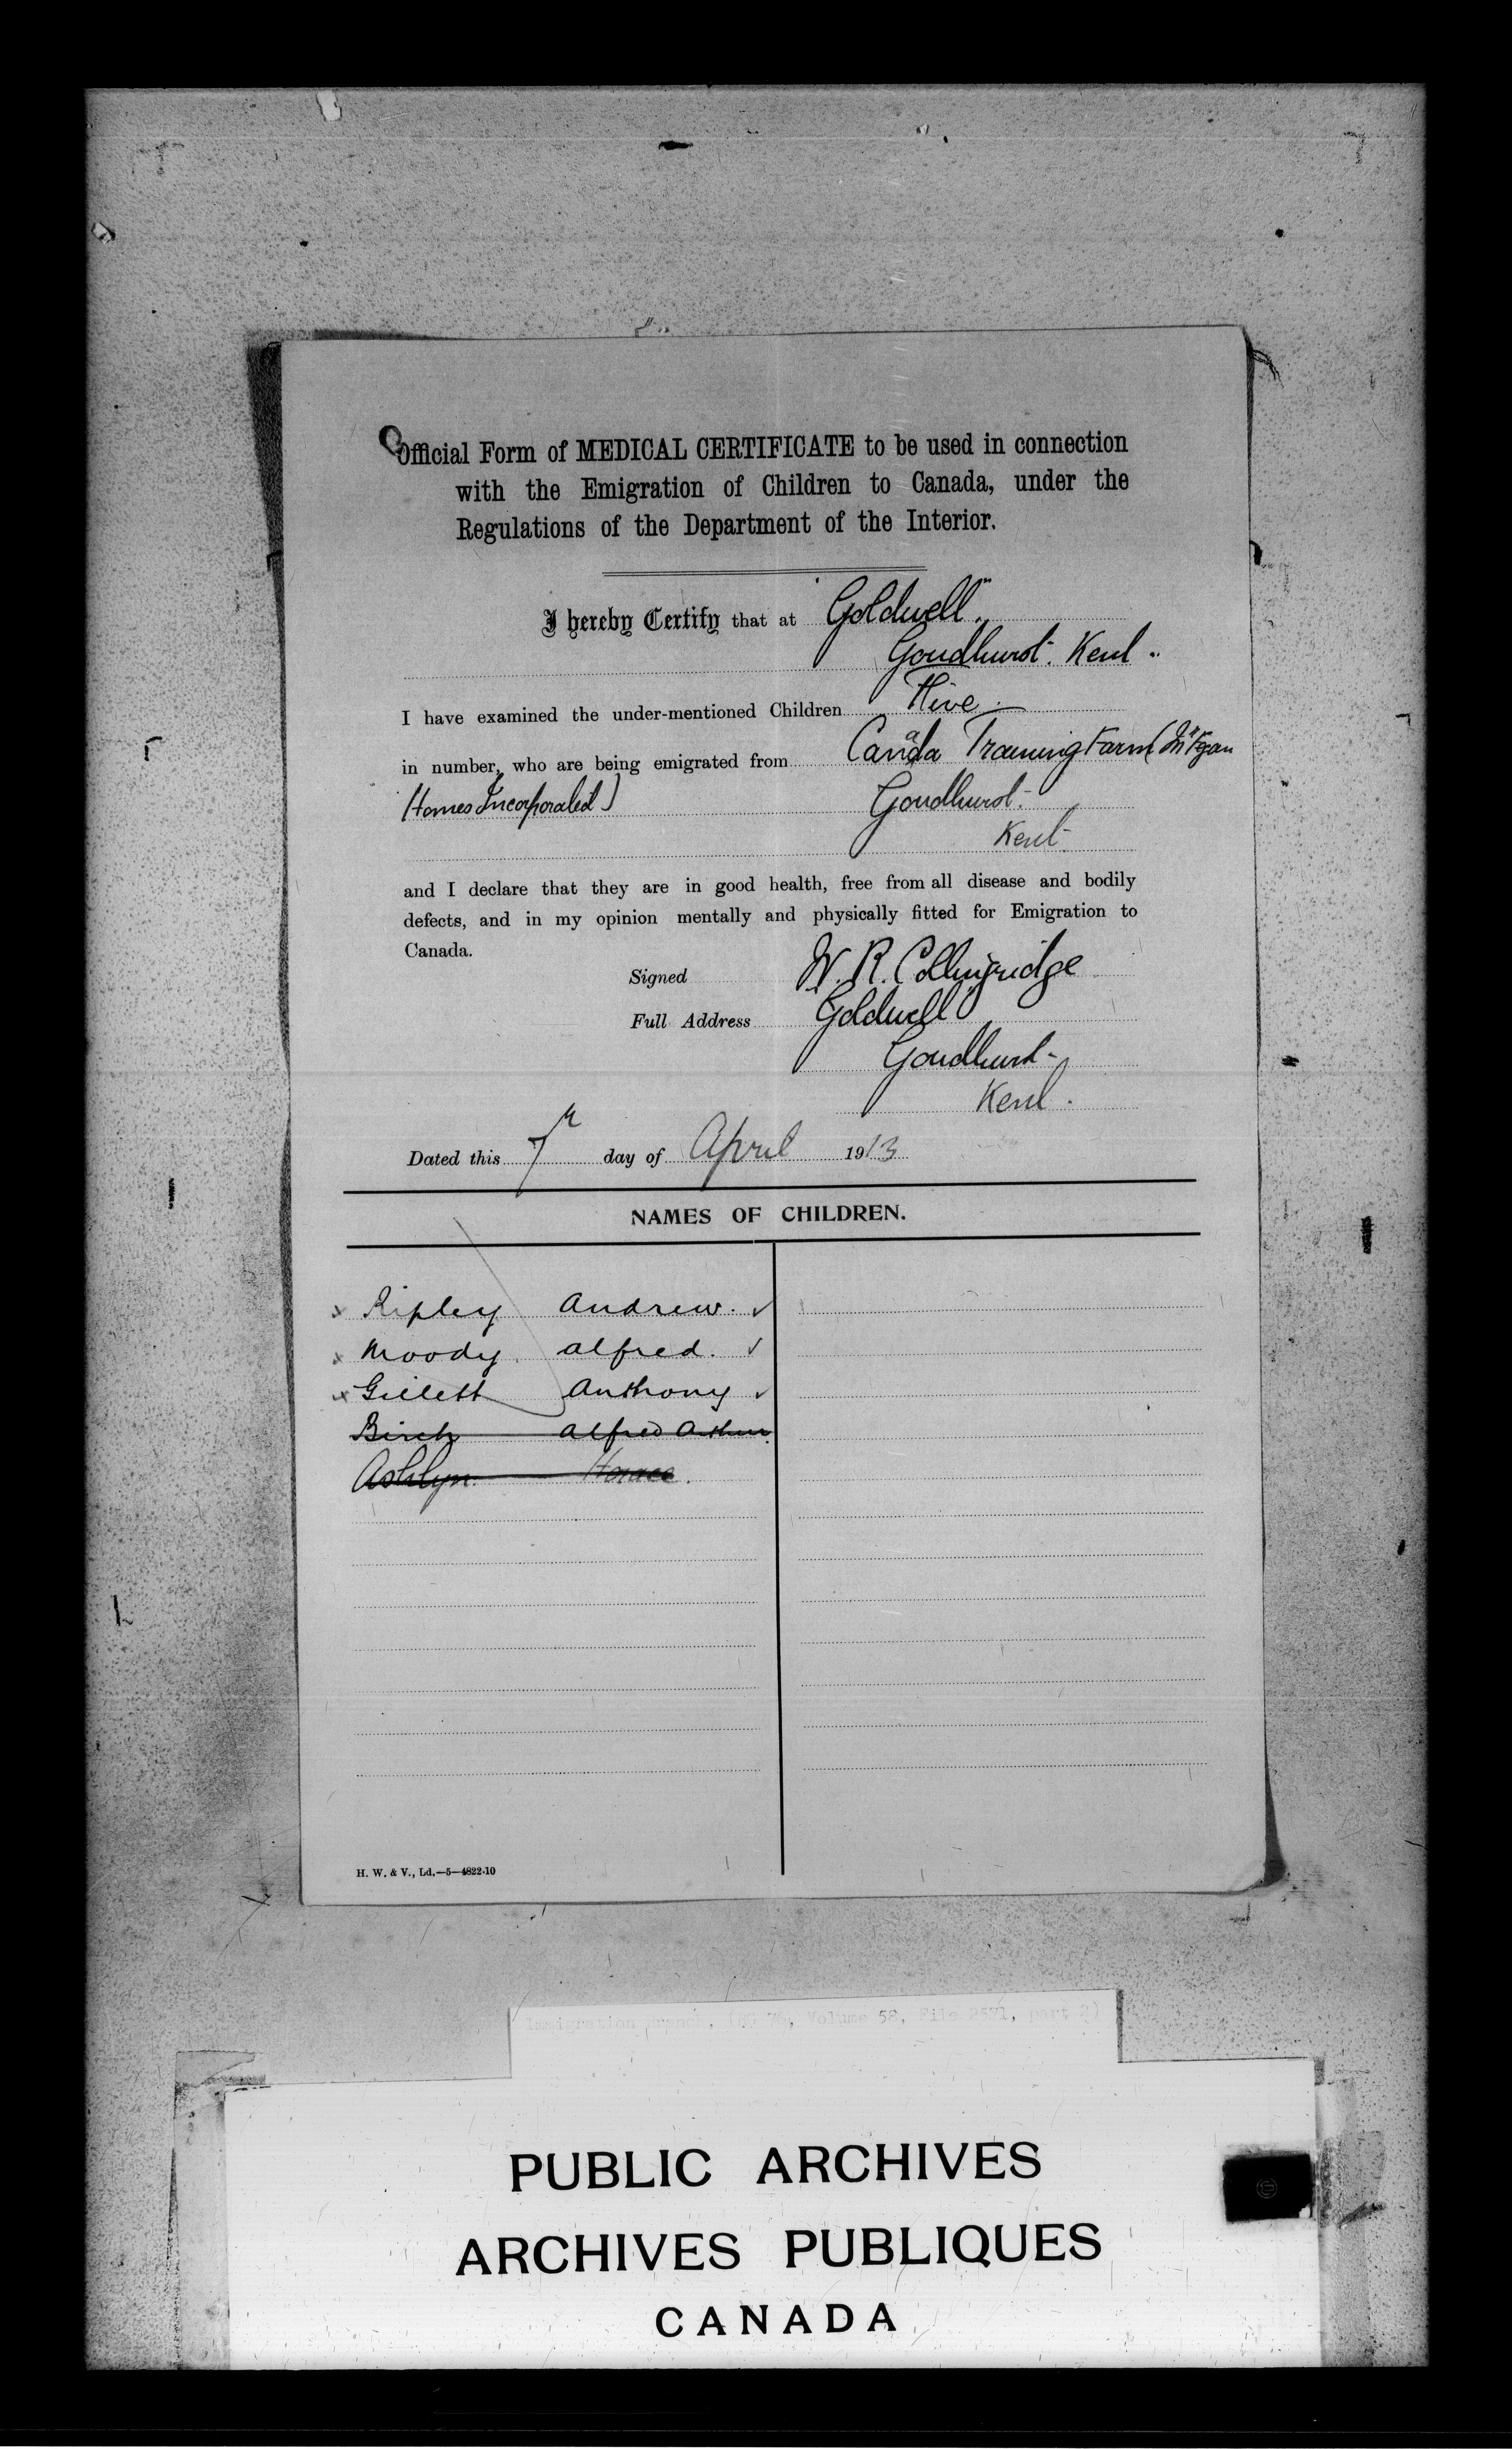 Official Form of MEDICAL CERTIFICATE to be used in connection
with the Emigration of Children to Canada, under the
Regulations of the Department of the Interior.
I hereby Certify that at "Goldwell"
Goudhurst. Kent
I have examined the under-mentioned Children Five
in number, who are being emigrated from Canada Training Farm (Dr Fegan
Homes Incorporated) Goudhurst
Kent
and I declare that they are in good health, free from all disease and bodily
defects, and in my opinion mentally and physically fitted for Emigration to
Canada.
Signed W. R. Collingridge
Full Address Goldwell
Goudhurst
Kent.
Dated this 7th day of April 1913
NAMES OF CHILDREN.
x Ripley Andrew. ✓
x Moody Alfred. ✓
x Gillett Anthony ✓
Birch Alfred Arthur
Ashlyn. Horace.
H. W. & V., Ld.—5—4822-10
Immigration Branch, (RG 76, Volume 58, File 2571, part 2)
PUBLIC ARCHIVES
ARCHIVES PUBLIQUES
CANADA